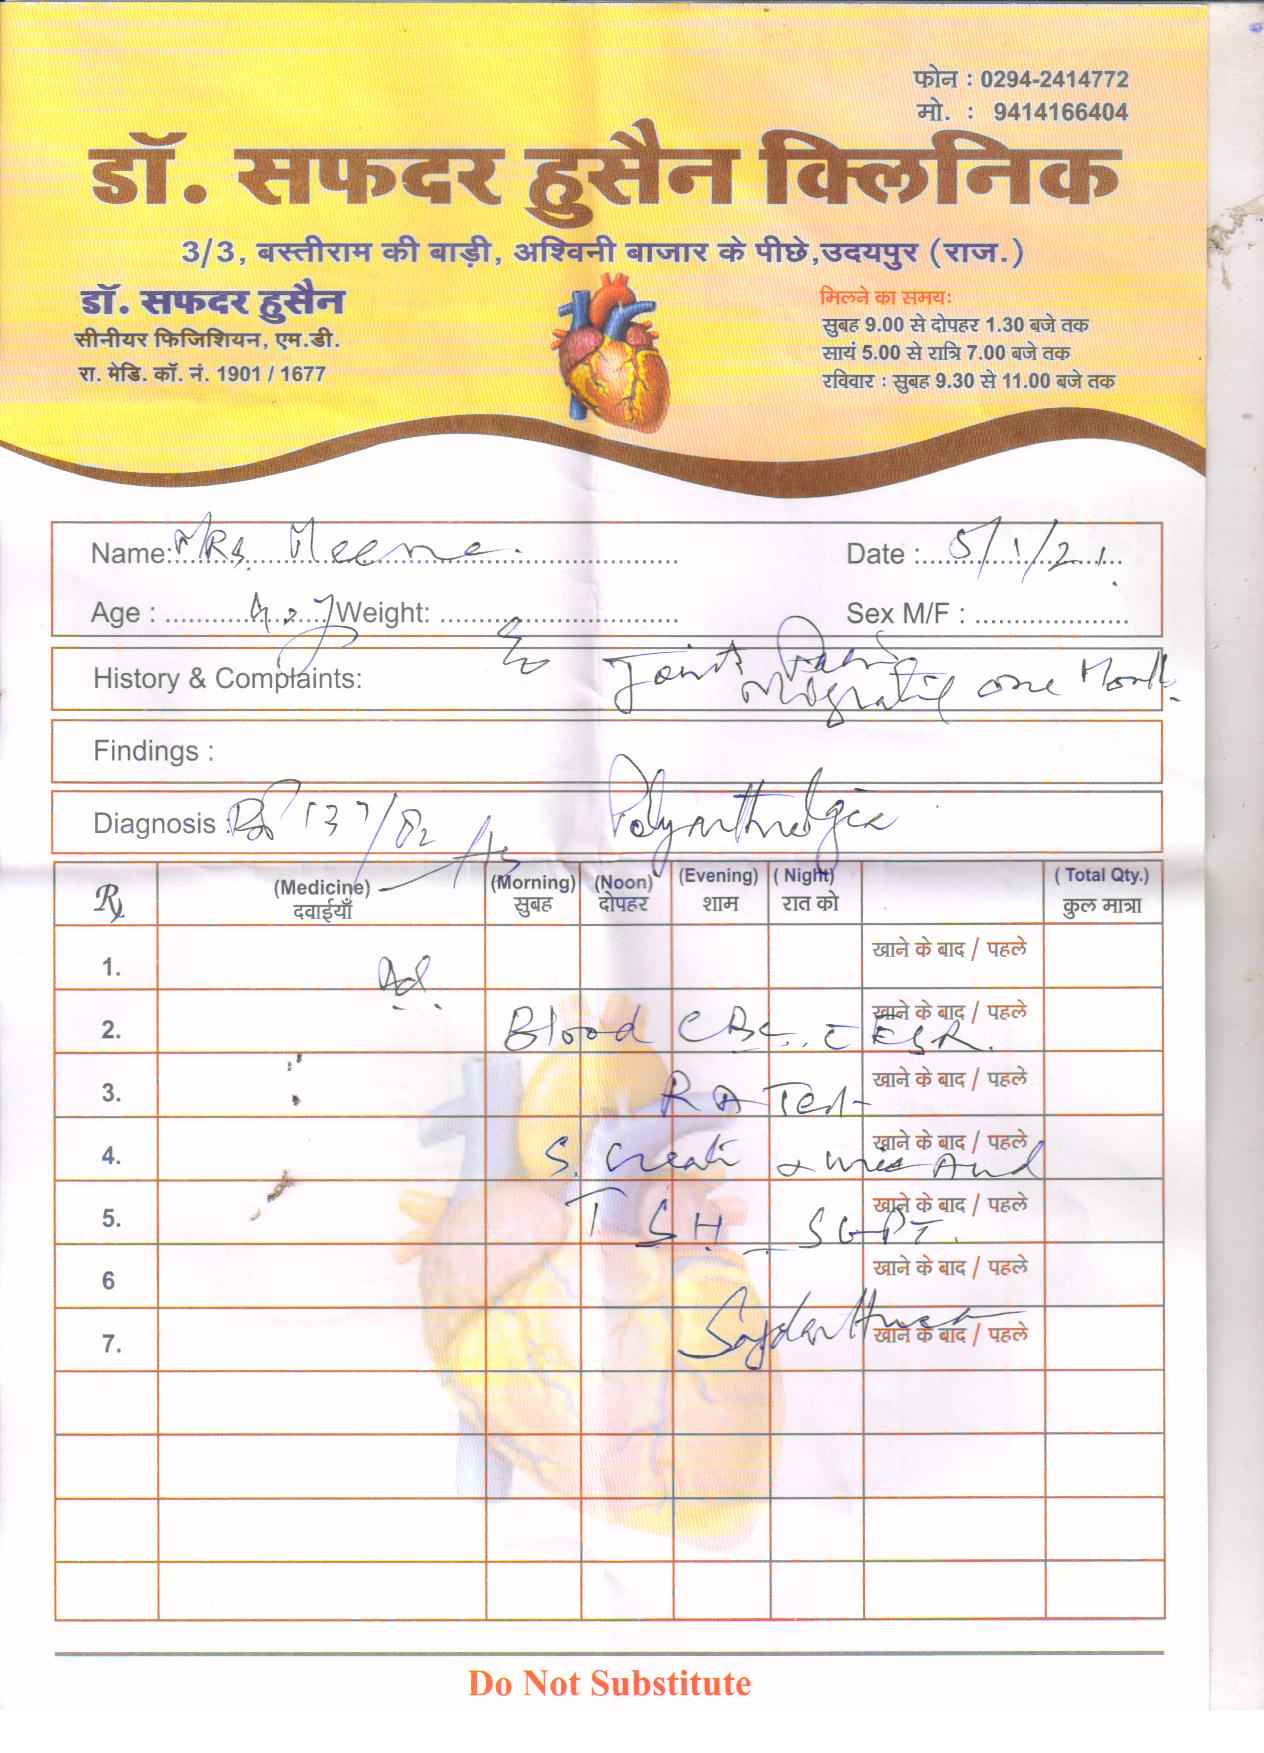 फोन : 0294-2414772
मो. : 9414166404
डॉ. सफदर हुसैन क्लिनिक
3/3, बस्तीराम की बाड़ी, अश्विनी बाजार के पीछे,उदयपुर (राज.)
डॉ. सफदर हुसैन
सीनीयर फिजिशियन, एम.डी.
रा. मेडि. कॉ. नं. 1901 / 1677
मिलने का समयः
सुबह 9.00 से दोपहर 1.30 बजे तक
सायं 5.00 से रात्रि 7.00 बजे तक
रविवार : सुबह 9.30 से 11.00 बजे तक
Name: Mrs. Meena. Date : 5/1/21.
Age : Weight: Sex M/F :
History & Complaints: Joints Pain
one Month
Findings :
Diagnosis : Polyarthralgia
Rx (Medicine) (Morning) (Noon) (Evening) (Night) (Total Qty.)
दवाईयाँ सुबह दोपहर शाम रात को कुल मात्रा
1. Ad. खाने के बाद / पहले
2. Blood CBC, ESR. खाने के बाद / पहले
3. RA Test खाने के बाद / पहले
4. S. Creati खाने के बाद / पहले
5. TSH SGPT. खाने के बाद / पहले
6 खाने के बाद / पहले
7. खाने के बाद / पहले
Do Not Substitute